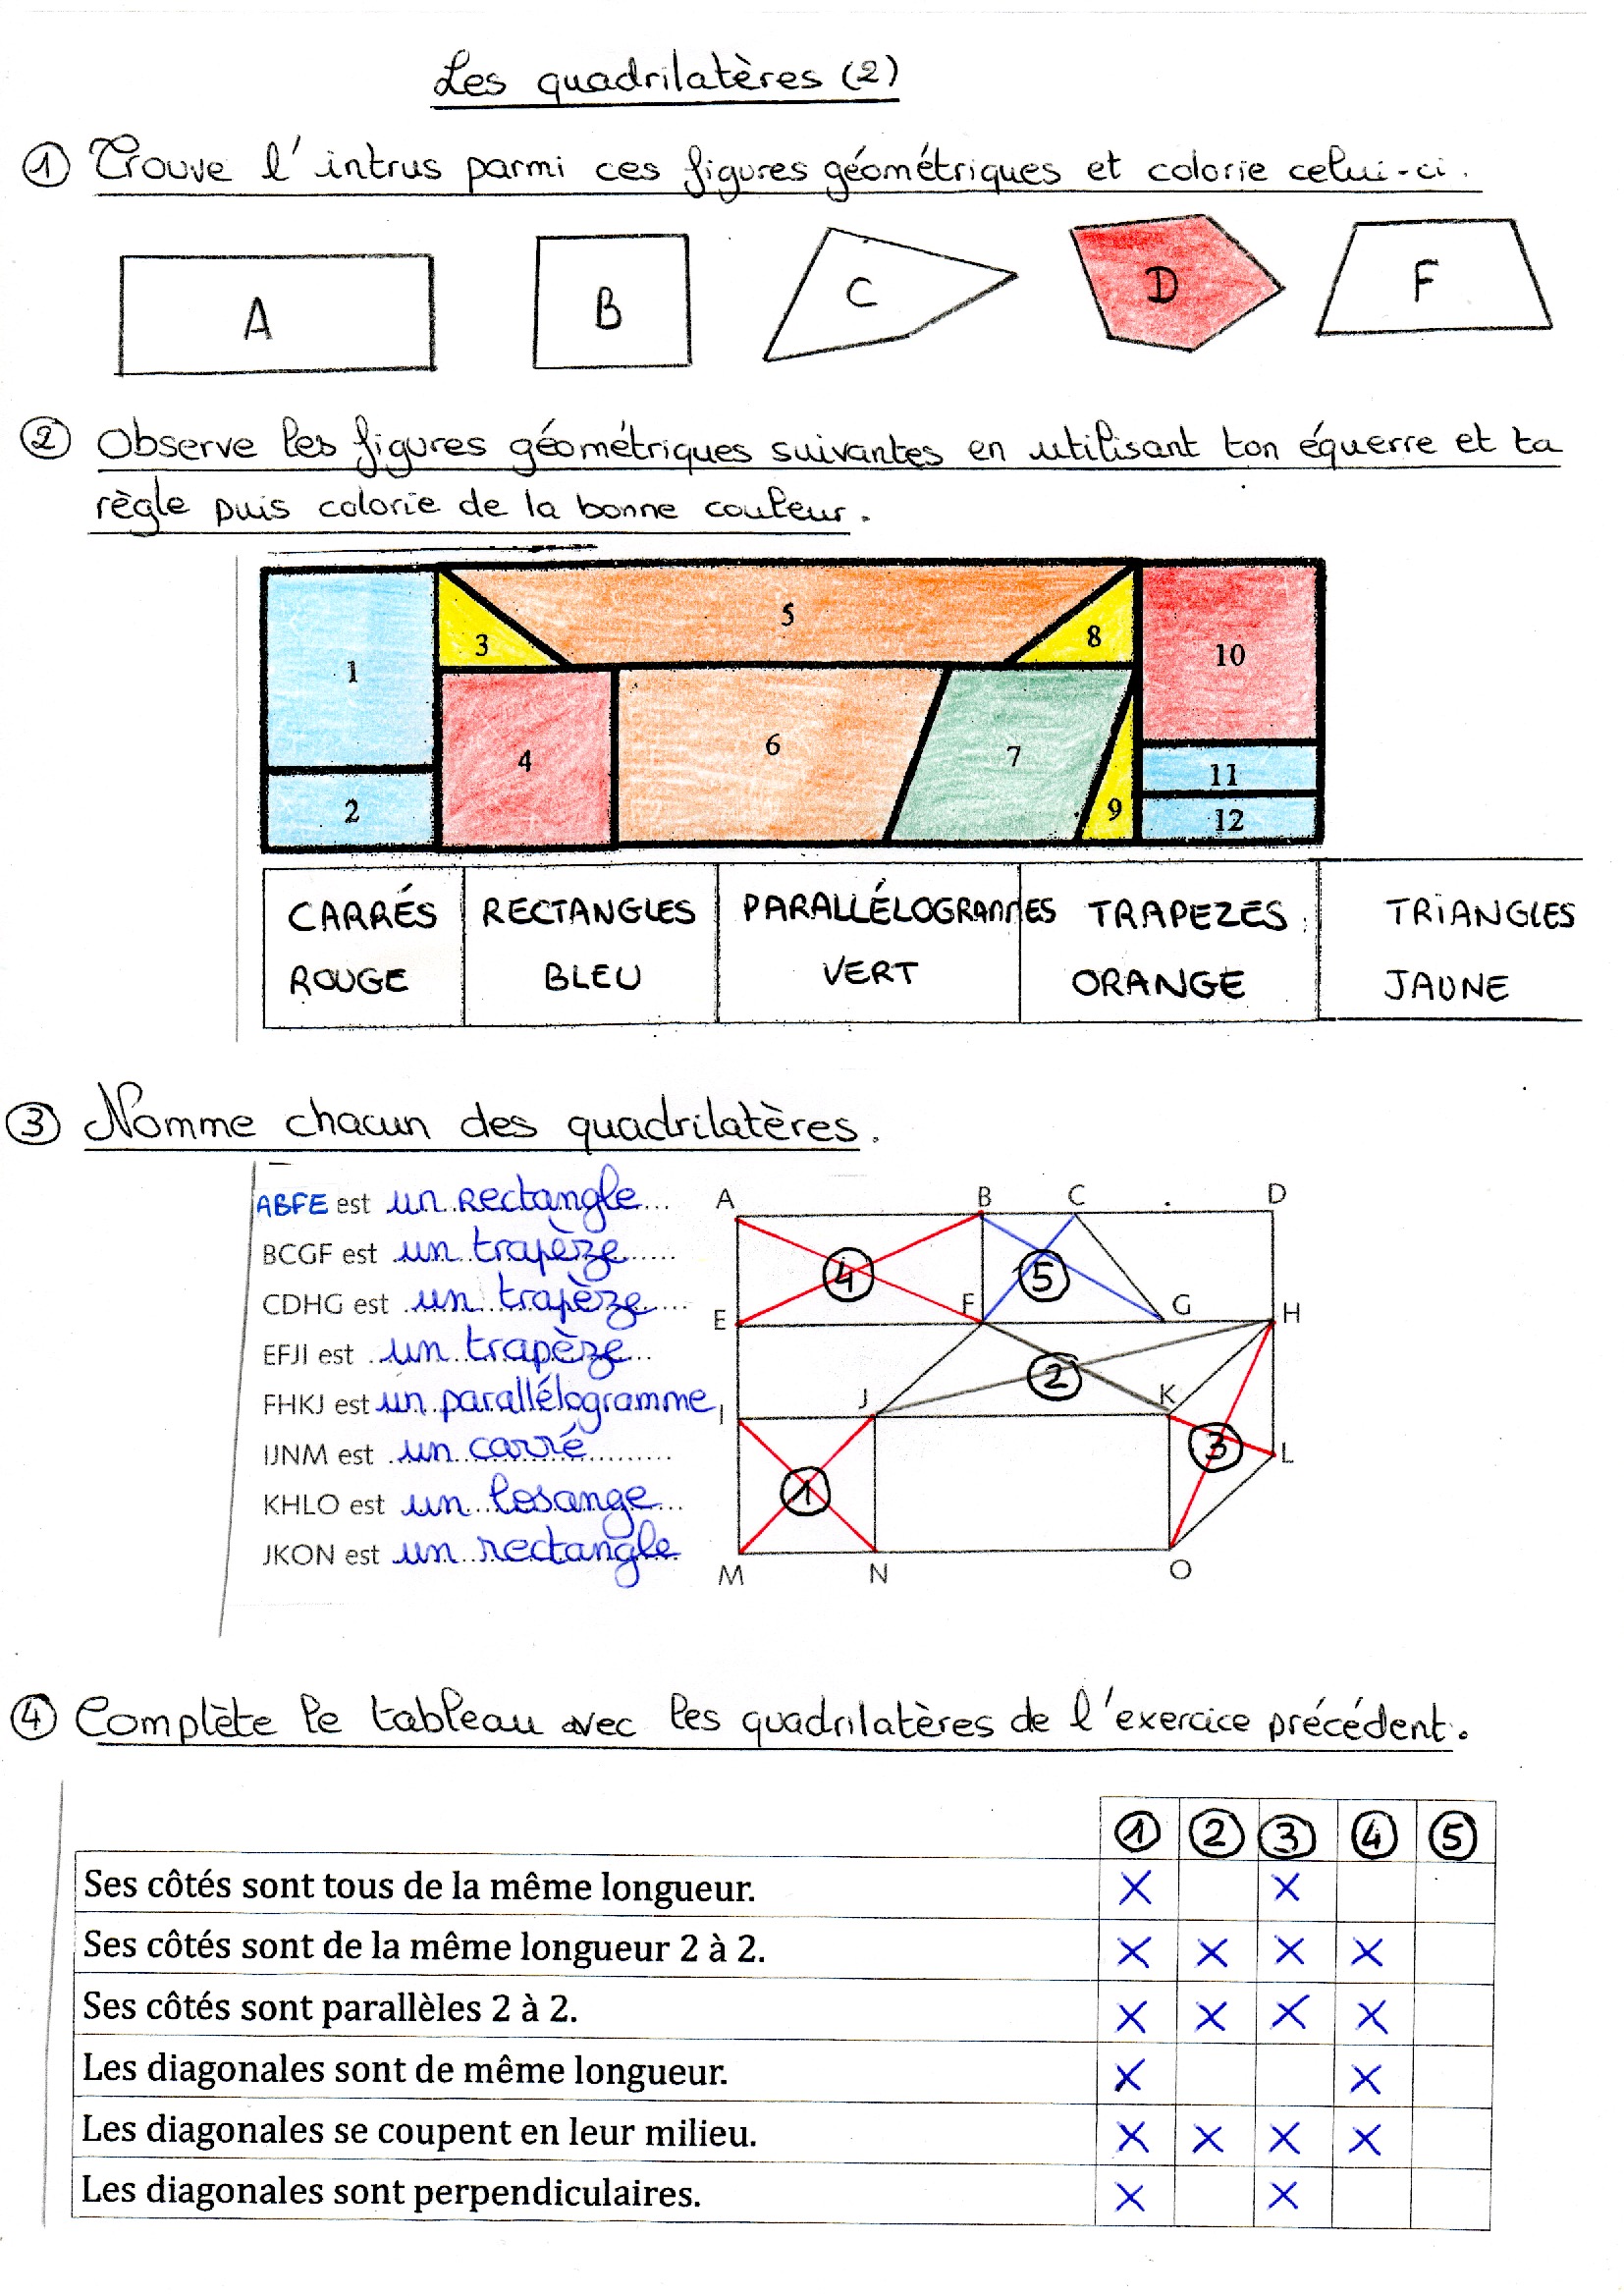 Les quadrilatères (2)
① Trouve l'intrus parmi ces figures géométriques et colorie celui-ci.
A B C D F
② Observe les figures géométriques suivantes en utilisant ton équerre et ta
règle puis colorie de la bonne couleur.
1 2 3 4 5 6 7 8 9 10 11 12
CARRÉS RECTANGLES PARALLÉLOGRAMMES TRAPEZES TRIANGLES
ROUGE BLEU VERT ORANGE JAUNE
③ Nomme chacun des quadrilatères.
ABFE est un rectangle
BCGF est un trapèze
CDHG est un trapèze
EFJI est un trapèze
FHKJ est un parallélogramme
IJNM est un carré
KHLO est un losange
JKON est un rectangle
A B C D
④ ⑤
E F G H
②
I J K
① ③ L
M N O
④ Complète le tableau avec les quadrilatères de l'exercice précédent.
① ② ③ ④ ⑤
Ses côtés sont tous de la même longueur. X X
Ses côtés sont de la même longueur 2 à 2. X X X X
Ses côtés sont parallèles 2 à 2. X X X X
Les diagonales sont de même longueur. X X
Les diagonales se coupent en leur milieu. X X X X
Les diagonales sont perpendiculaires. X X